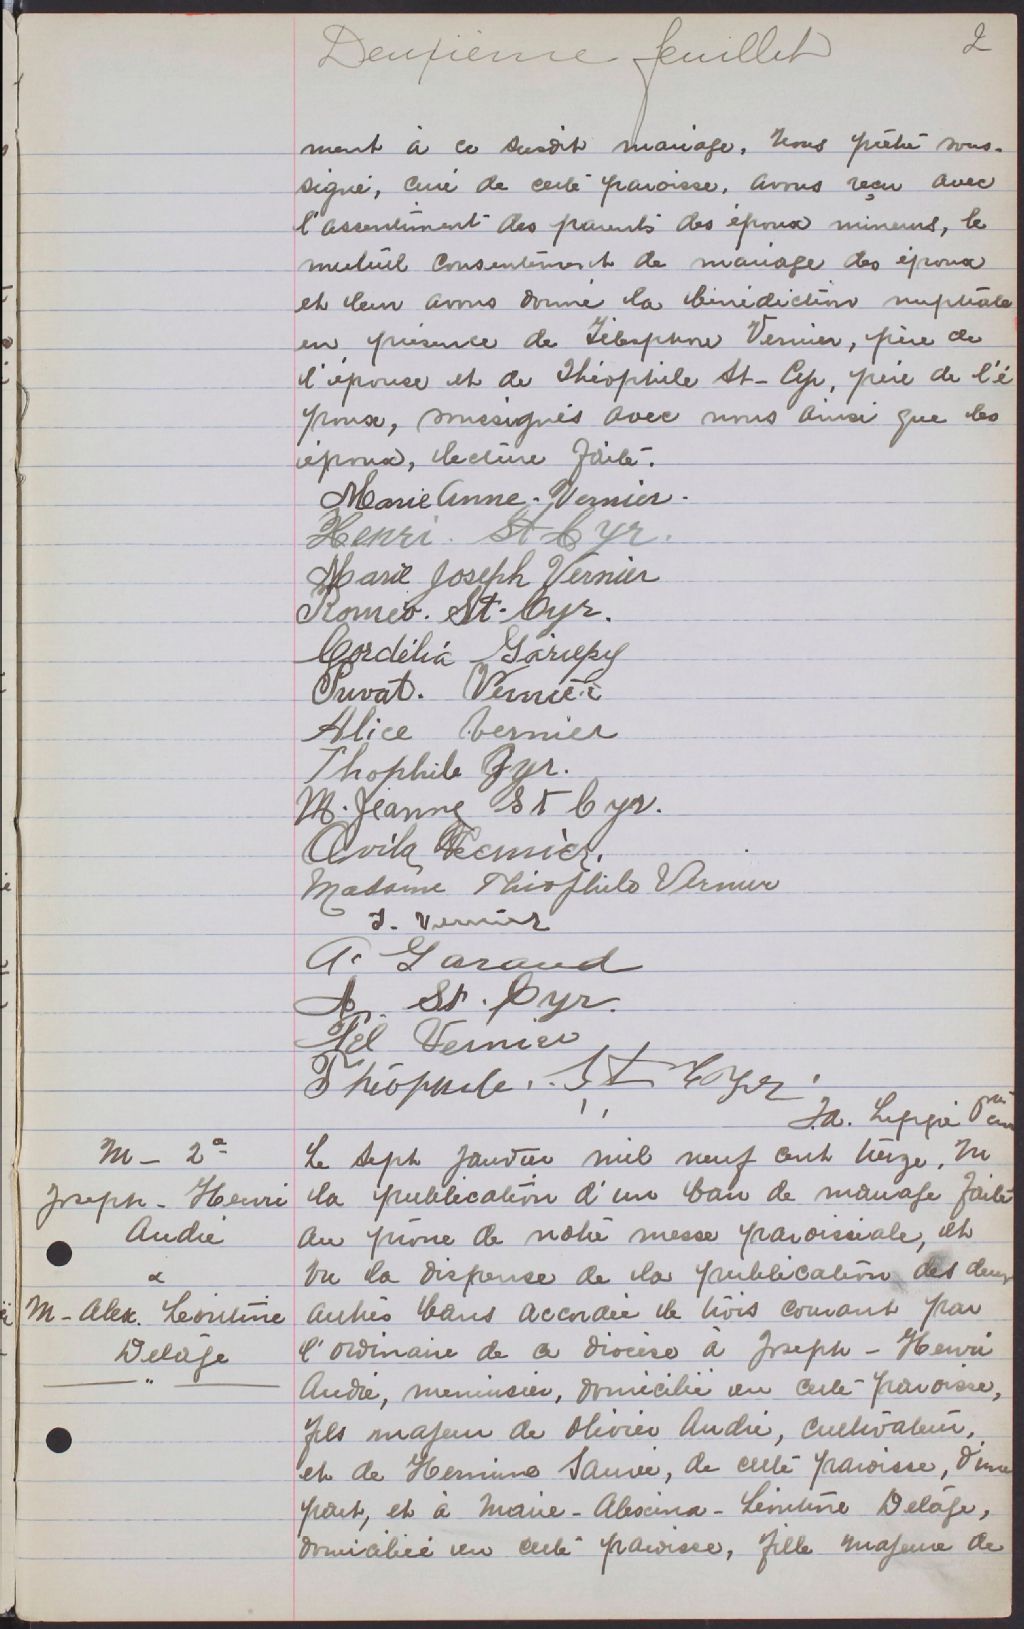 Deuxième feuillet 2
ment à ce susdit mariage, Nous prêtre sous-
signé, curé de cette paroisse, avons reçu avec
l'assentiment des parents des époux mineurs, le
mutuel consentement de mariage des époux
et leur avons donné la bénédiction nuptiale
en présence de Télesphore Vernier, père de
l'épouse et de Théophile St-Cyr, père de l'é
poux, soussignés avec nous ainsi que les
époux, lecture faite.
Marie Anne. Vernier.
Henri. St-Cyr.
Marie Joseph Vernier
Roméo. St-Cyr.
Cordélia Gariepy
Privat. Vernier
Alice Vernier
Thophile Cyr.
M. Jeanne St Cyr.
Avila Vernier.
Madame Théophile Vernier
J. Vernier
A. Garaud
A. St. Cyr.
Tél Vernier
Théophile. St Cyr
Ja. ptre curé
M - 2e
Joseph - Henri
André
&
M - Alex. Léontine
Delâge
Le sept janvier mil neuf cent treize, Vu
la publication d'un ban de mariage faite
au prône de notre messe paroissiale, et
vu la dispense de la publication des deux
autres bans accordée le trois courant par
l'ordinaire de ce diocèse à Joseph - Henri
André, menuisier, domicilié en cette paroisse,
fils majeur de Olivier André, cultivateur,
et de Hermine Sauvé, de cette paroisse, d'une
part, et à Marie - Alexina - Léontine Delâge,
domiciliée en cette paroisse, fille majeure de